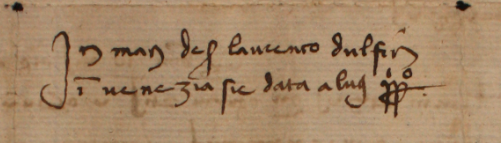 In man de s laurenco dulfin
in venezia sie data a lui pp